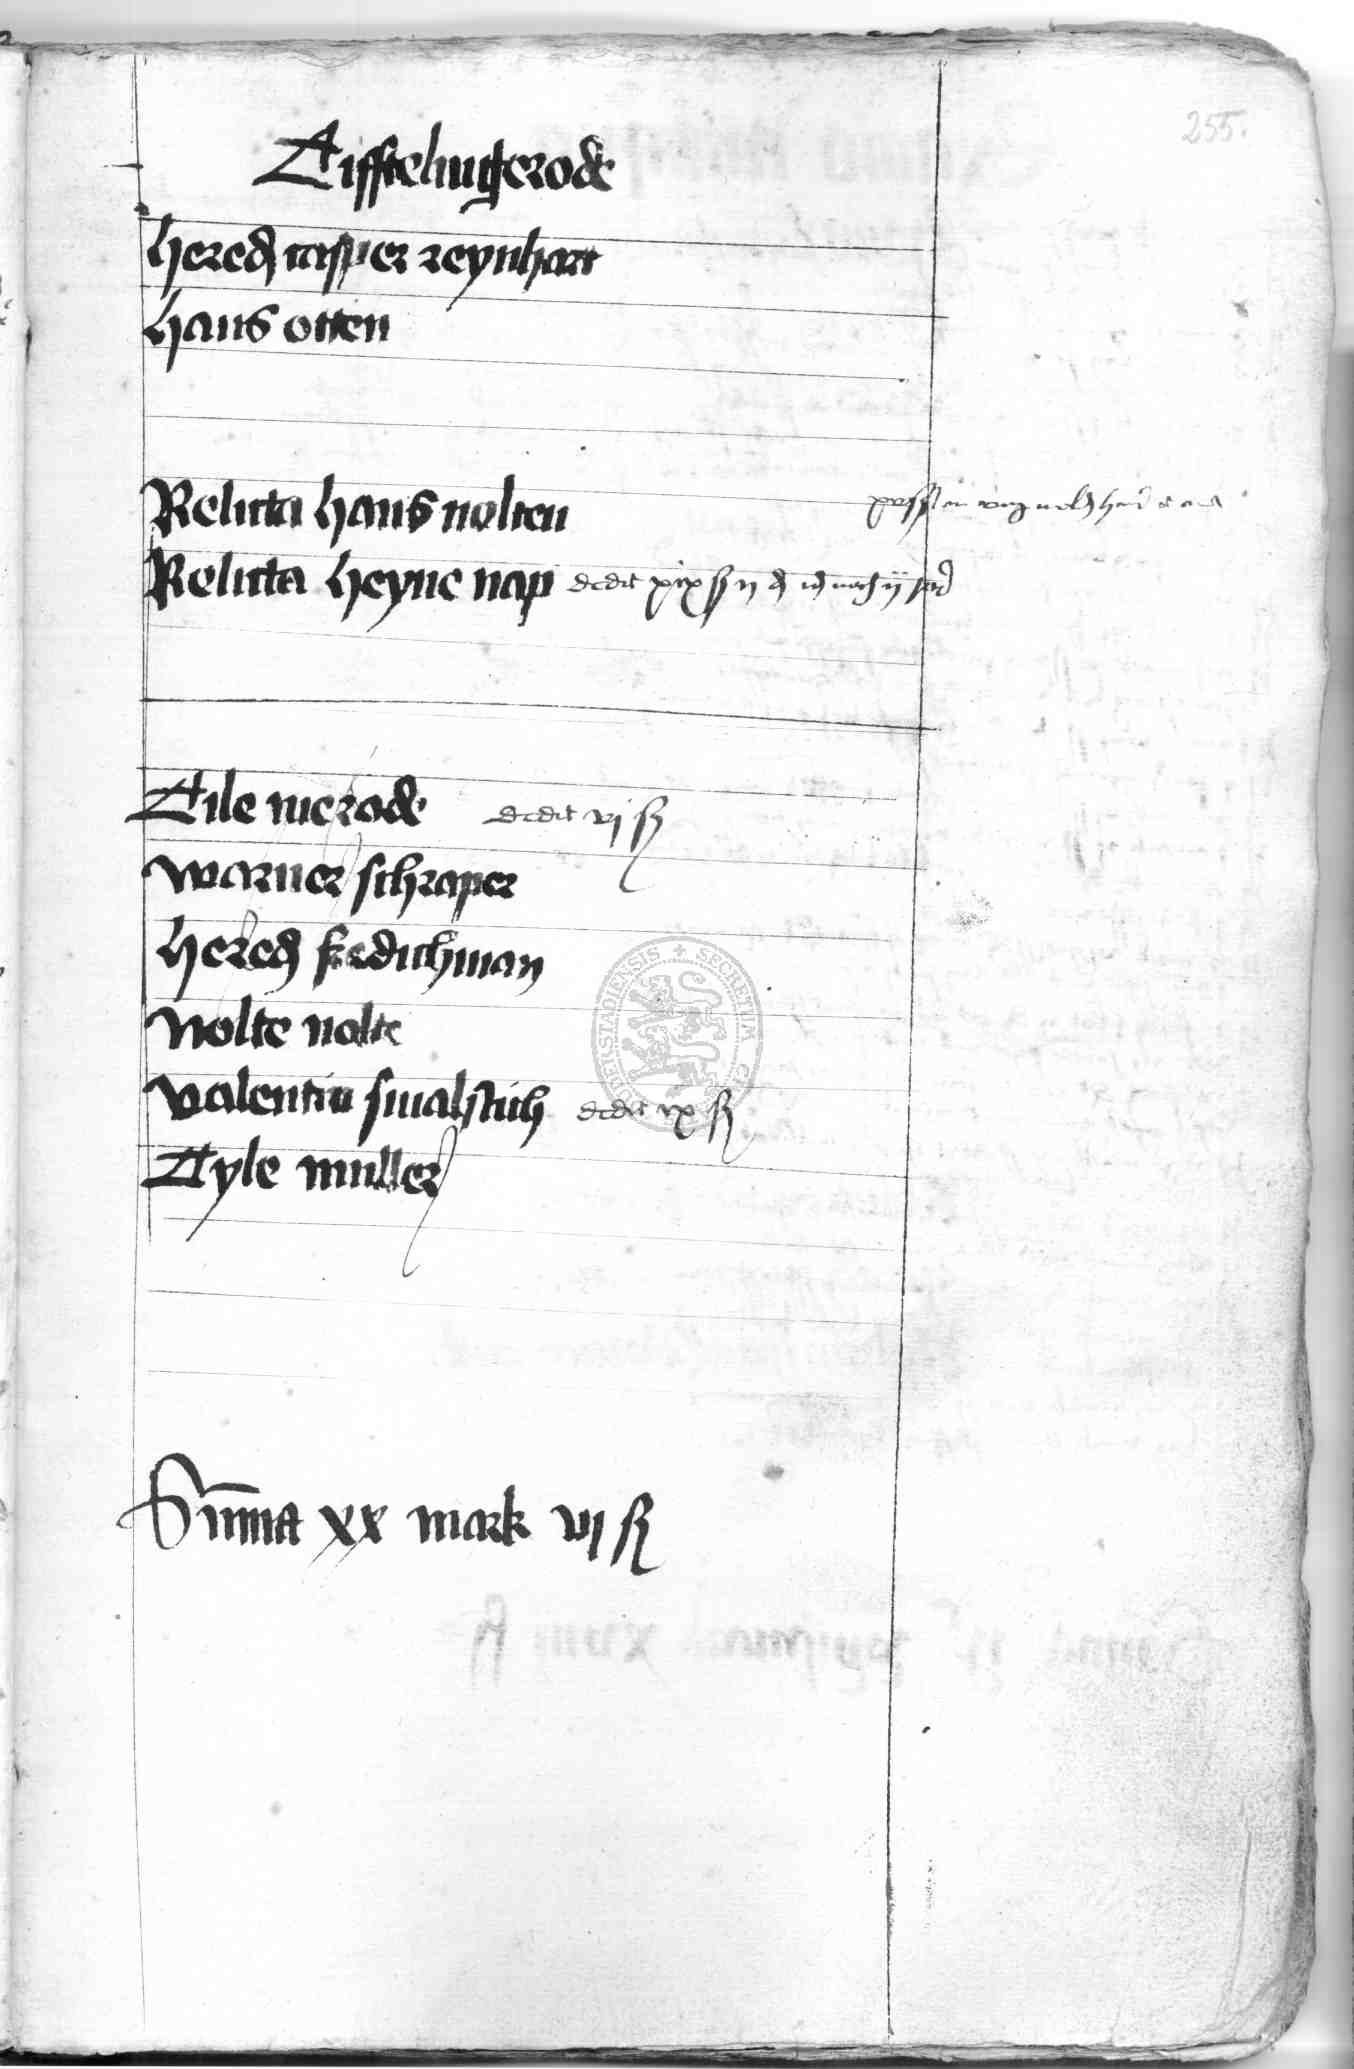 255.
Tifftelingerode
hered casper reynhart
hans otten
Relicta hans nolten
Relicta heyne nap dedit xix ß ij d
Tile nicrode dedit vj ß
warner schraper
hered fredichman
nolte nolte
valentin smalstich dedit ix ß
Tyle muller
Summa xx mark vi ß
SECRETUM